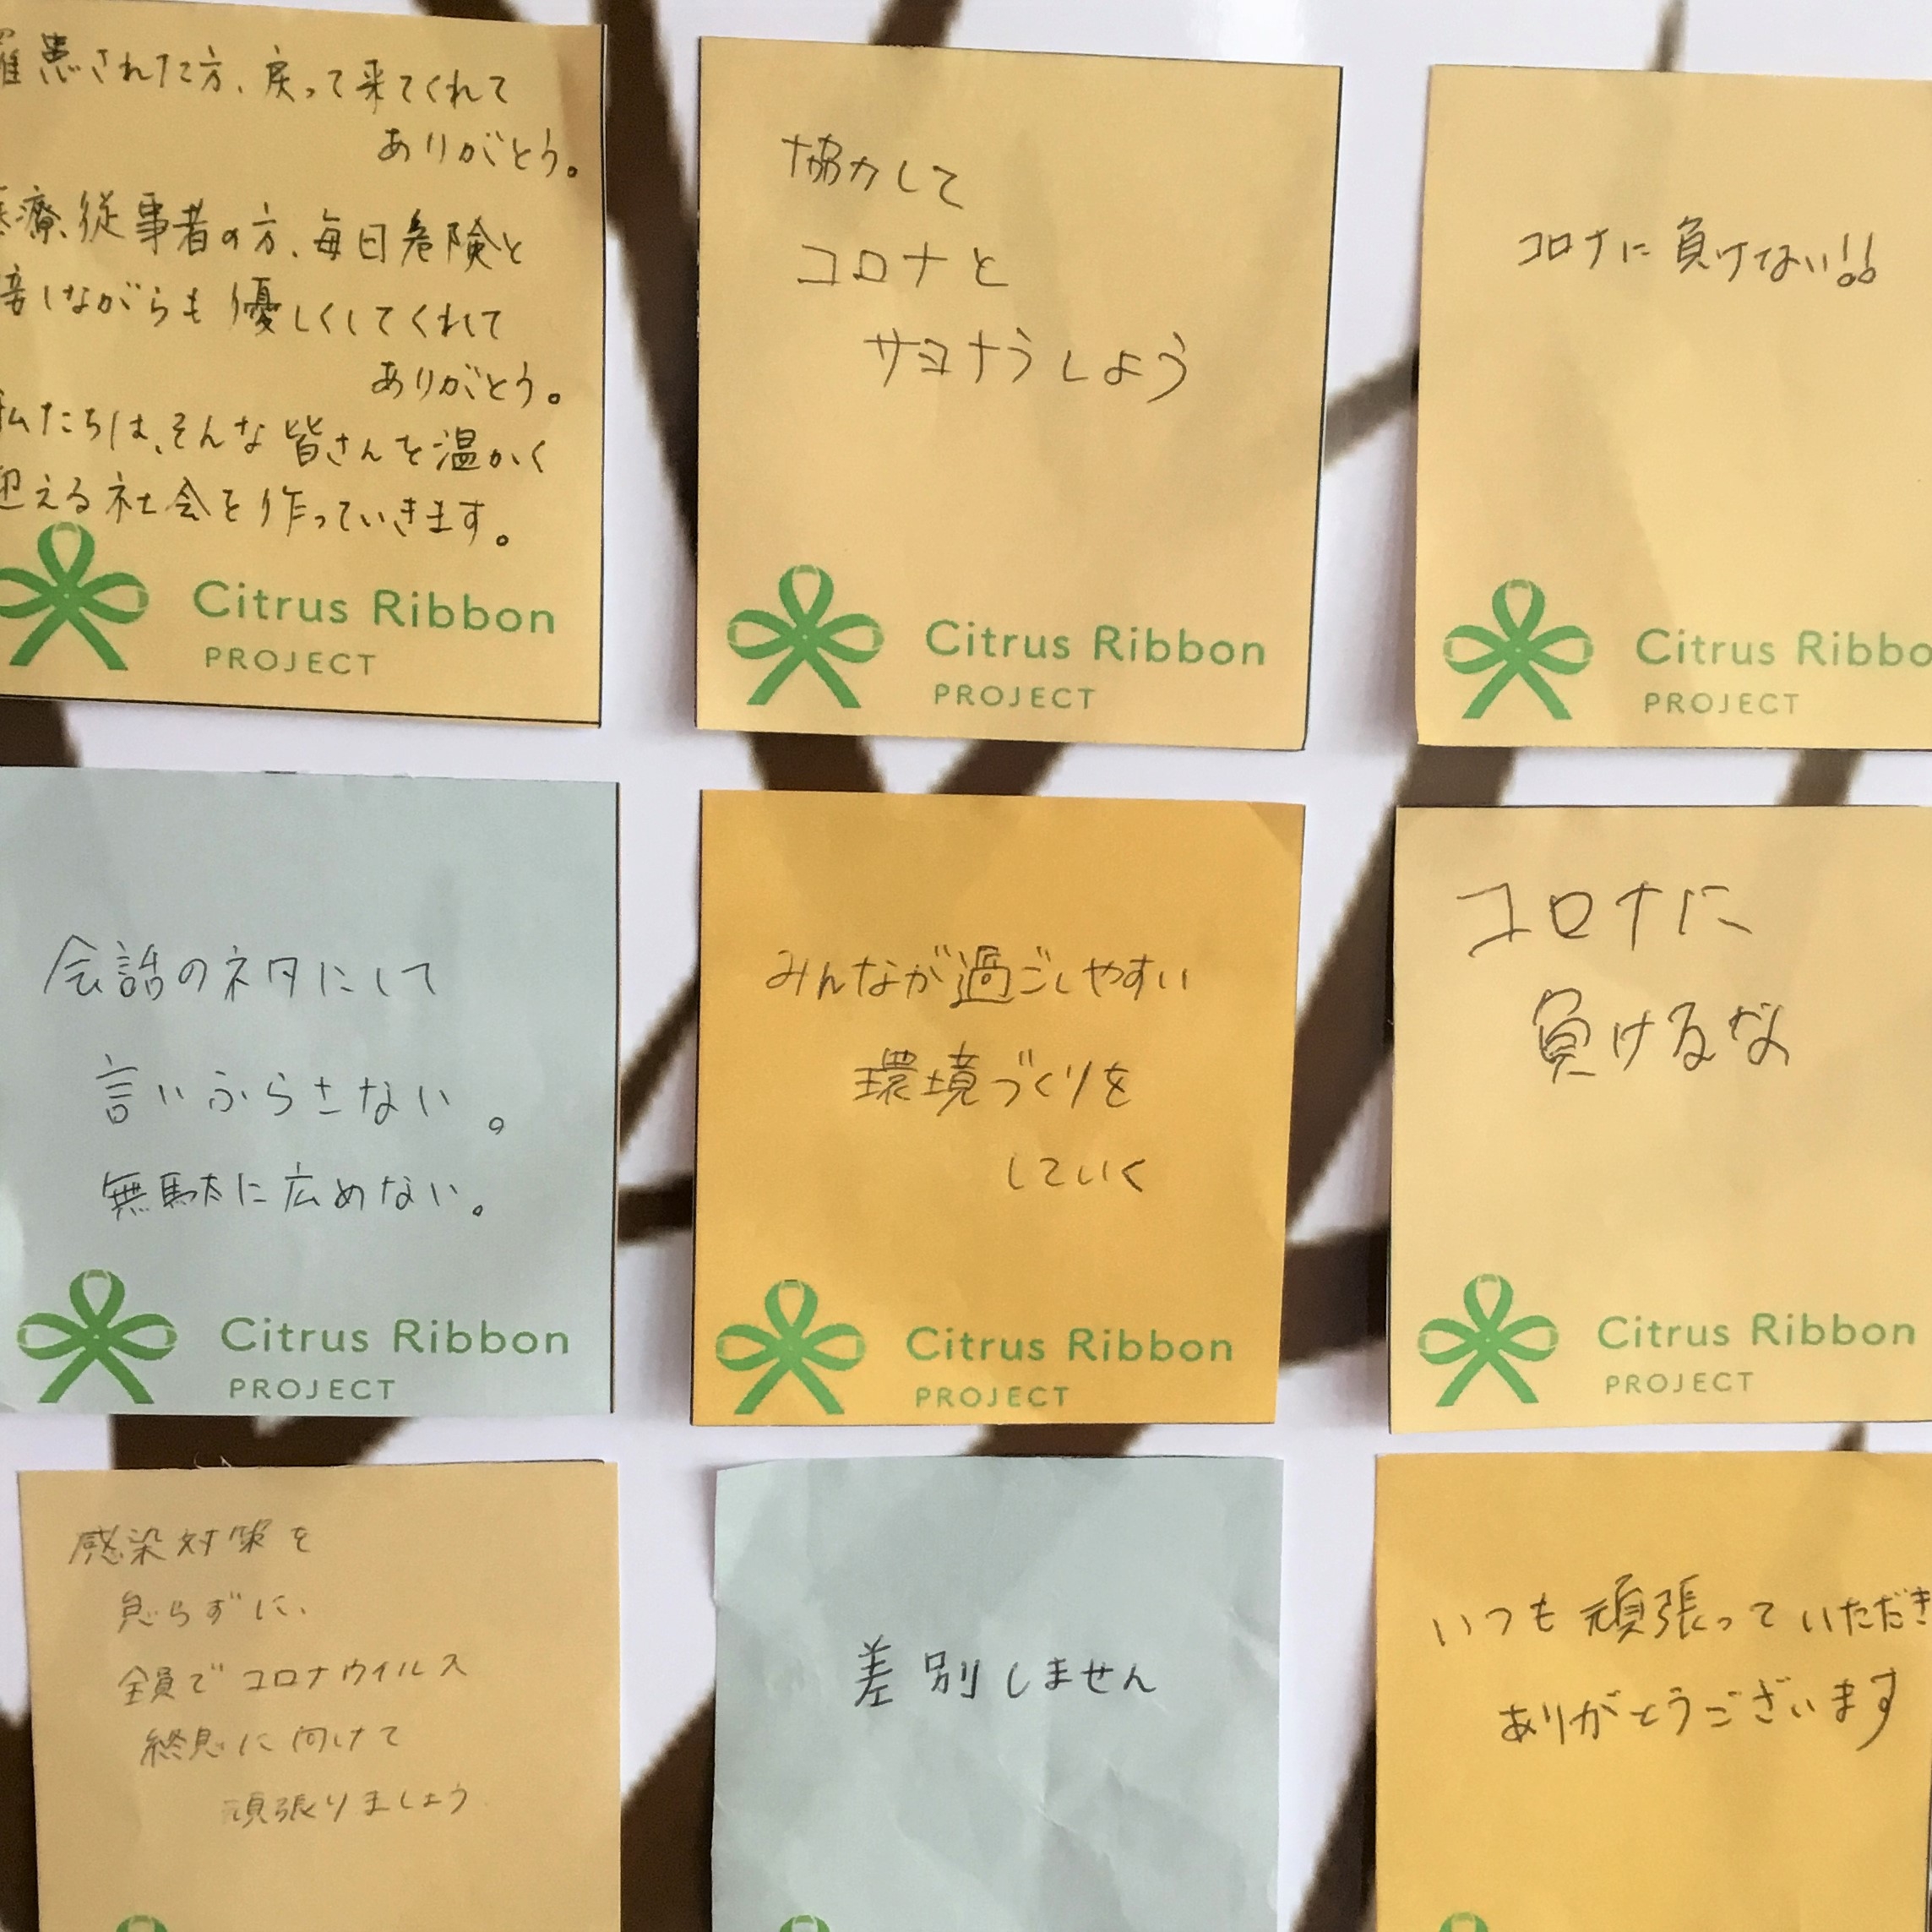 罹患された方、戻って来てくれて
ありがとう。
医療従事者の方、毎日危険と
接しながらも優しくしてくれて
ありがとう。
私たちは、そんな皆さんを温かく
迎える社会を作っていきます。
Citrus Ribbon
PROJECT
協力して
コロナと
サヨナラしよう
Citrus Ribbon
PROJECT
コロナに負けない!!
Citrus Ribbo
PROJECT
会話のネタにして
言いふらさない。
無駄に広めない。
Citrus Ribbon
PROJECT
みんなが過ごしやすい
環境づくりを
していく
Citrus Ribbon
PROJECT
コロナに
負けるな
Citrus Ribbon
PROJECT
感染対策を
怠らずに、
全員でコロナウイルス
終息に向けて
頑張りましょう
差別しません
いつも頑張っていただき
ありがとうございます